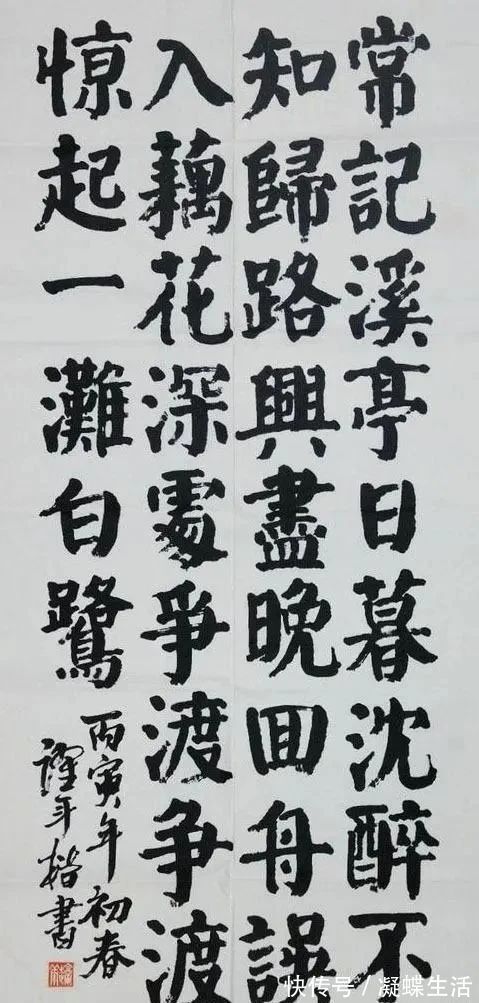 常記溪亭日暮沈醉不
知歸路興盡晚回舟誤
入藕花深處爭渡爭渡
惊起一灘白鷺
丙寅年初春
年楷書
快传号/凝蝶生活